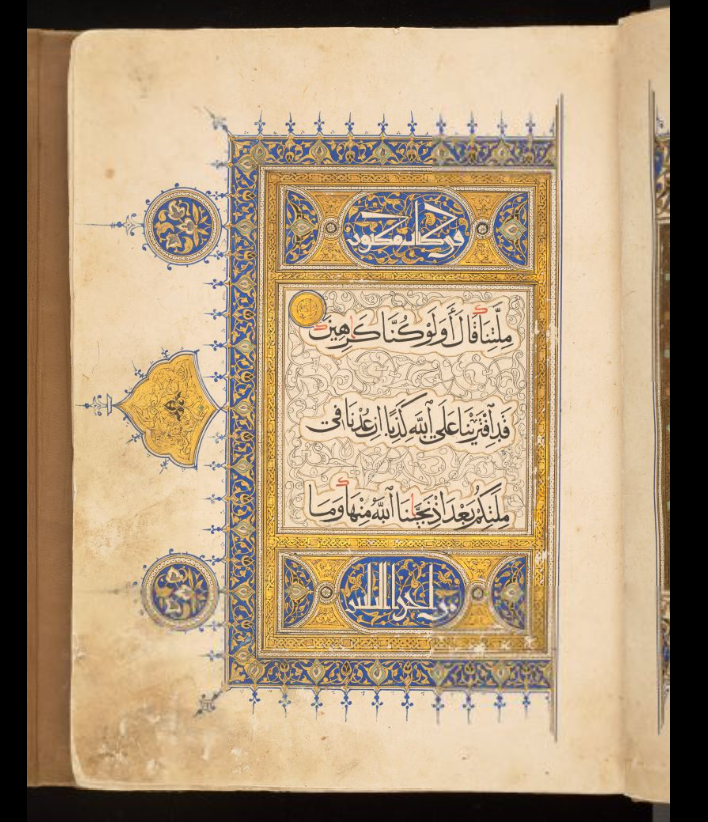 فى كتاب مكنون
مِلَّتِنَا قَالَ أَوَلَوْ كُنَّا كَٰرِهِينَ
قَدِ ٱفْتَرَيْنَا عَلَى ٱللَّهِ كَذِبًا اِنْ عُدْنَا فِى
مِلَّتِكُمْ بَعْدَ اِذْ نَجَّىٰنَا ٱللَّهُ مِنْهَا وَمَا
من اجزا